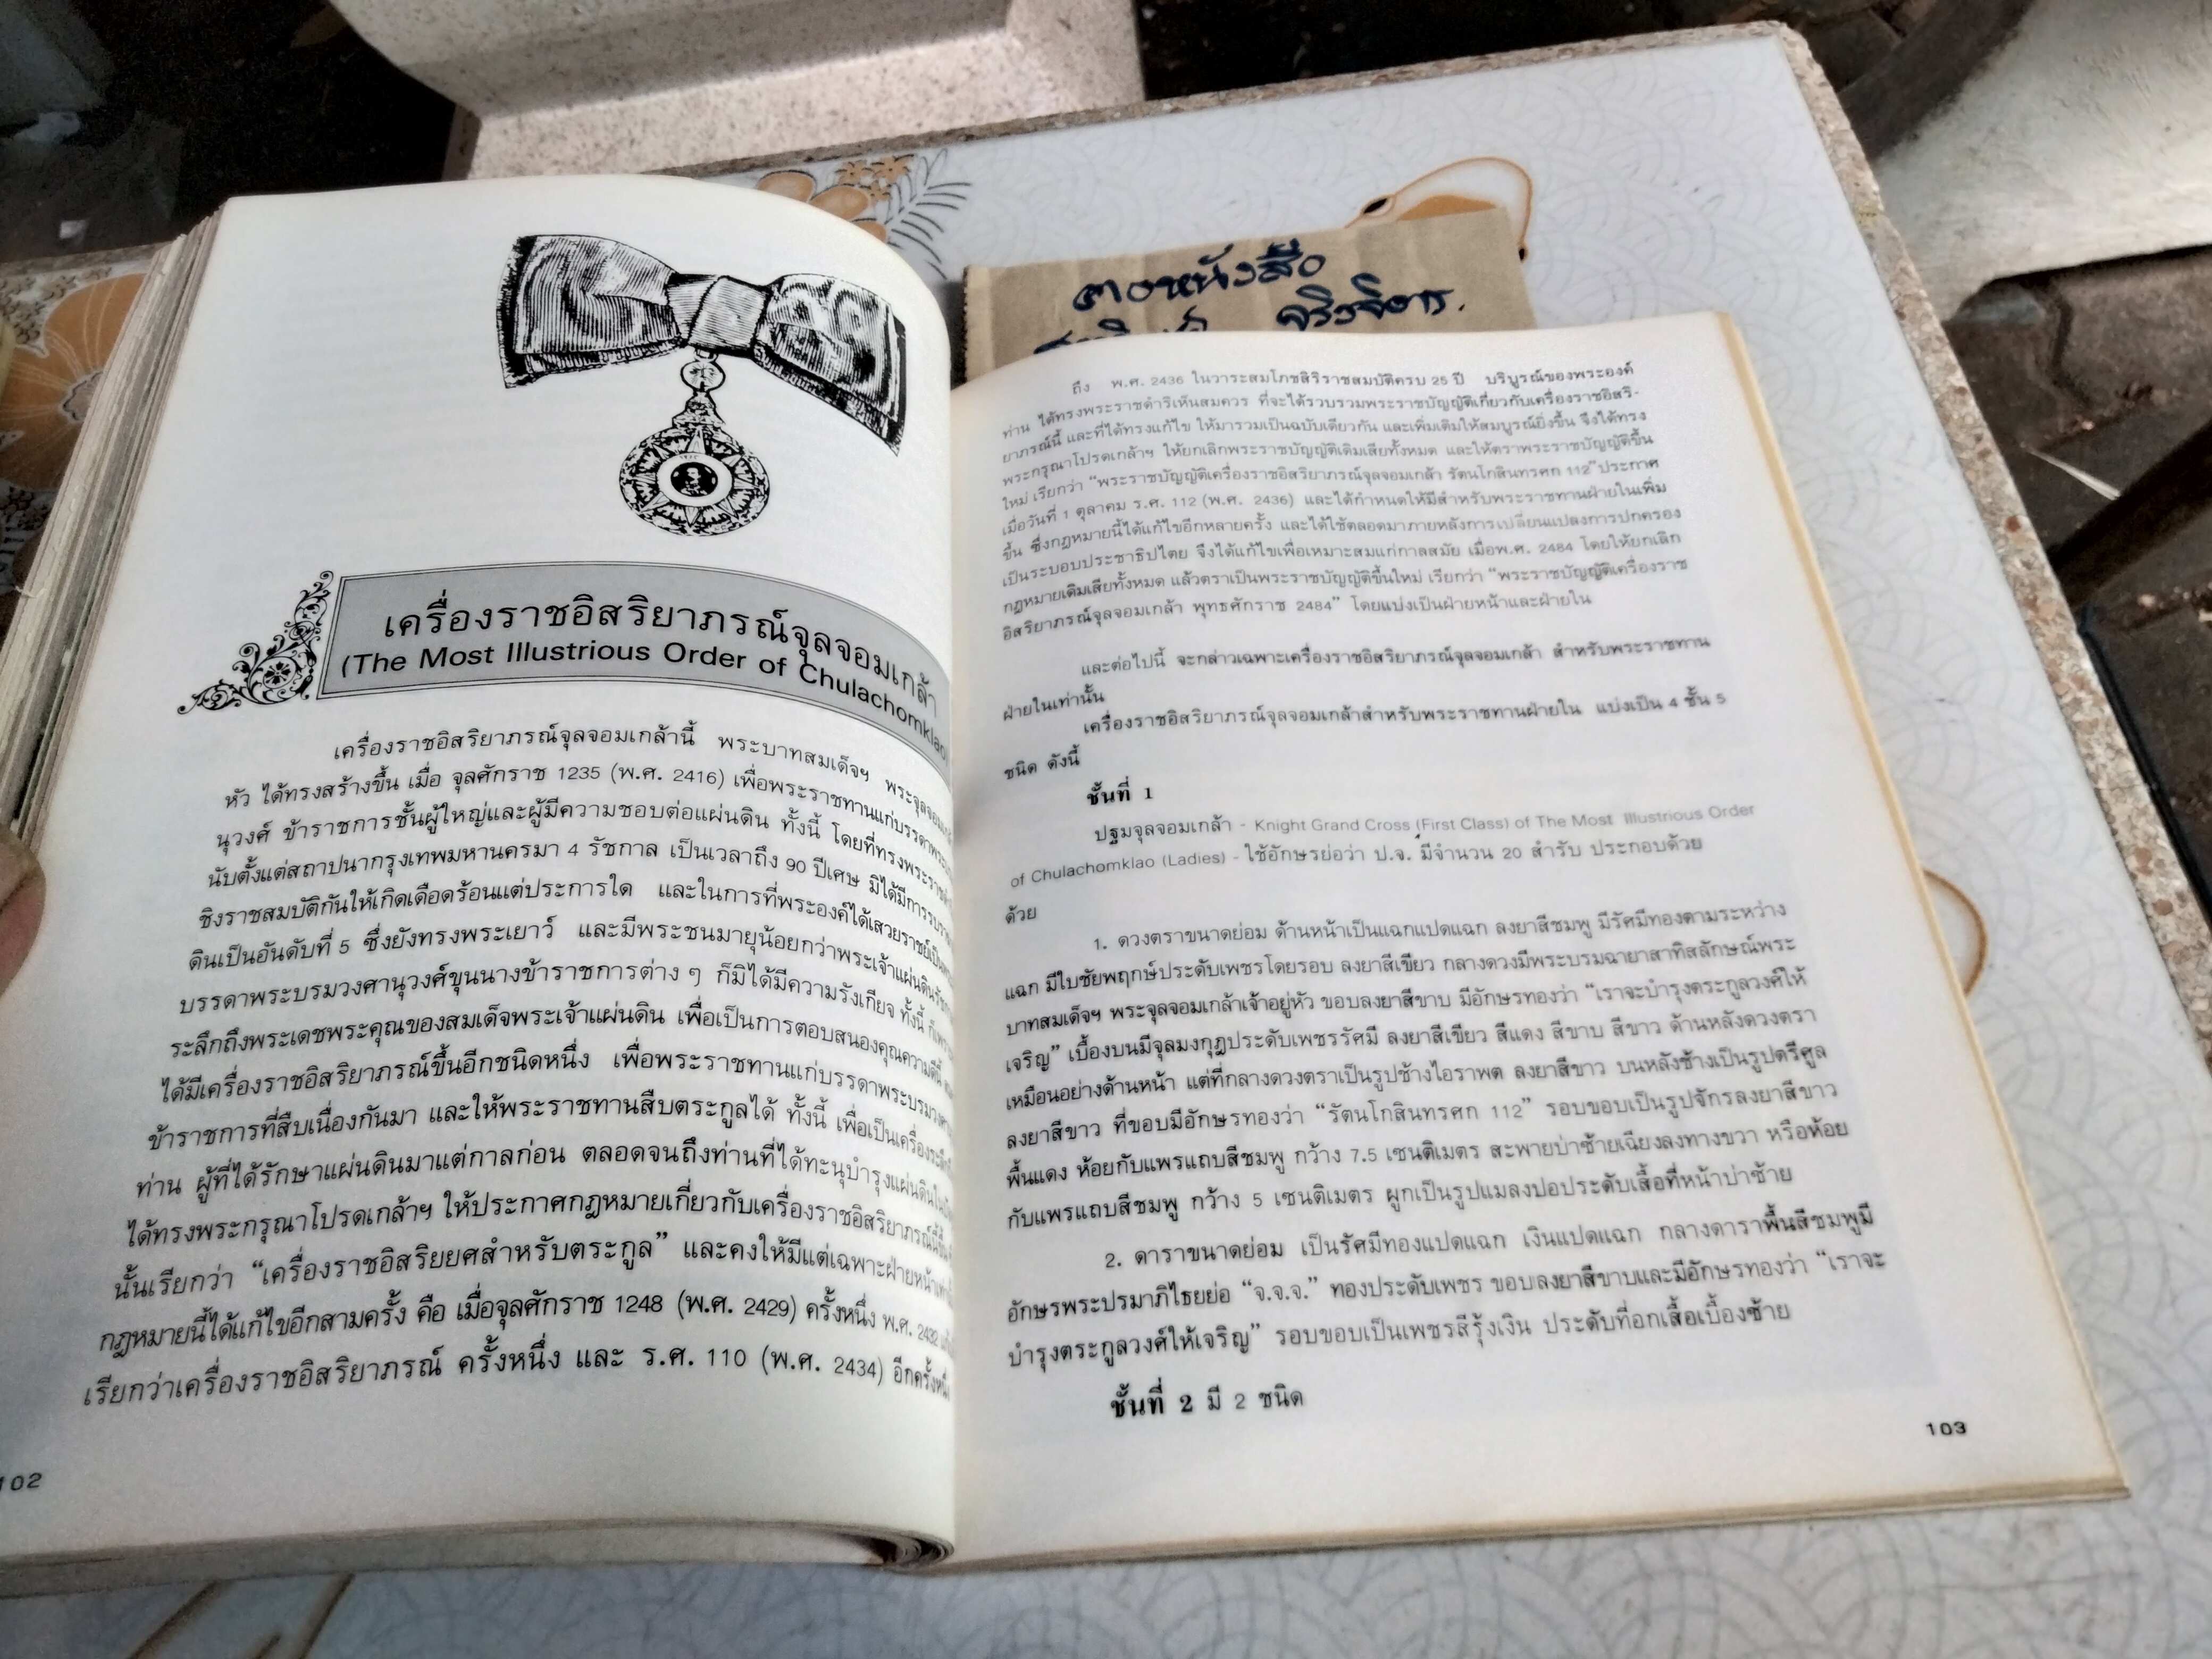 เครื่องราชอิสริยาภรณ์จุลจอมเกล้า
(The Most Illustrious Order of Chulachomklao)
เครื่องราชอิสริยาภรณ์จุลจอมเกล้านี้ พระบาทสมเด็จฯ
หัว ได้ทรงสร้างขึ้น เมื่อ จุลศักราช 1235 (พ.ศ. 2416) เพื่อพระราชทานแก่บรรดา
นุวงศ์ ข้าราชการชั้นผู้ใหญ่และผู้มีความชอบต่อแผ่นดิน ทั้งนี้ โดยที่ทรง
นับตั้งแต่สถาปนากรุงเทพมหานครมา 4 รัชกาล เป็นเวลาถึง 90 ปีเศษ มิได้มีการ
ชิงราชสมบัติกันให้เกิดเดือดร้อนแต่ประการใด และในการที่พระองค์ได้เสวยราชย์
ดินเป็นอันดับที่ 5 ซึ่งยังทรงพระเยาว์ และมีพระชนมายุน้อยกว่าพระเจ้าแผ่นดิน
บรรดาพระบรมวงศานุวงศ์ขุนนางข้าราชการต่าง ๆ ก็มิได้มีความรังเกียจ ทั้งนี้
ระลึกถึงพระเดชพระคุณของสมเด็จพระเจ้าแผ่นดิน เพื่อเป็นการตอบสนองคุณความดีนี้
ได้มีเครื่องราชอิสริยาภรณ์ขึ้นอีกชนิดหนึ่ง เพื่อพระราชทานแก่บรรดาพระบรม
ข้าราชการที่สืบเนื่องกันมา และให้พระราชทานสืบตระกูลได้ ทั้งนี้ เพื่อเป็นเครื่อง
ท่าน ผู้ที่ได้รักษาแผ่นดินมาแต่กาลก่อน ตลอดจนถึงท่านที่ได้ทะนุบำรุงแผ่นดิน
ได้ทรงพระกรุณาโปรดเกล้าฯ ให้ประกาศกฎหมายเกี่ยวกับเครื่องราชอิสริยาภรณ์
นั้นเรียกว่า “เครื่องราชอิสริยยศสำหรับตระกูล” และคงให้มีแต่เฉพาะฝ่ายหน้า
กฎหมายนี้ได้แก้ไขอีกสามครั้ง คือ เมื่อจุลศักราช 1248 (พ.ศ. 2429) ครั้งหนึ่ง พ.ศ. 2432
เรียกว่าเครื่องราชอิสริยาภรณ์ ครั้งหนึ่ง และ ร.ศ. 110 (พ.ศ. 2434) อีกครั้งหนึ่ง
102
ถึง พ.ศ. 2436 ในวาระสมโภชสิริราชสมบัติครบ 25 ปี บริบูรณ์ของพระองค์
ท่าน ได้ทรงพระราชดำริเห็นสมควร ที่จะได้รวบรวมพระราชบัญญัติเกี่ยวกับเครื่องราชอิสริ-
ยาภรณ์นี้ และที่ได้ทรงแก้ไข ให้มารวมเป็นฉบับเดียวกัน และเพิ่มเติมให้สมบูรณ์ยิ่งขึ้น จึงได้ทรง
พระกรุณาโปรดเกล้าฯ ให้ยกเลิกพระราชบัญญัติเดิมเสียทั้งหมด และให้ตราพระราชบัญญัติขึ้น
ใหม่ เรียกว่า “พระราชบัญญัติเครื่องราชอิสริยาภรณ์จุลจอมเกล้า รัตนโกสินทรศก 112” ประกาศ
เมื่อวันที่ 1 ตุลาคม ร.ศ. 112 (พ.ศ. 2436) และได้กำหนดให้มีสำหรับพระราชทานฝ่ายในเพิ่ม
ขึ้น ซึ่งกฎหมายนี้ได้แก้ไขอีกหลายครั้ง และได้ใช้ตลอดมาภายหลังการเปลี่ยนแปลงการปกครอง
เป็นระบอบประชาธิปไตย จึงได้แก้ไขเพื่อเหมาะสมแก่กาลสมัย เมื่อพ.ศ. 2484 โดยให้ยกเลิก
กฎหมายเดิมเสียทั้งหมด แล้วตราเป็นพระราชบัญญัติขึ้นใหม่ เรียกว่า “พระราชบัญญัติเครื่องราช
อิสริยาภรณ์จุลจอมเกล้า พุทธศักราช 2484” โดยแบ่งเป็นฝ่ายหน้าและฝ่ายใน
และต่อไปนี้ จะกล่าวเฉพาะเครื่องราชอิสริยาภรณ์จุลจอมเกล้า สำหรับพระราชทาน
ฝ่ายในเท่านั้น
เครื่องราชอิสริยาภรณ์จุลจอมเกล้าสำหรับพระราชทานฝ่ายใน แบ่งเป็น 4 ชั้น 5
ชนิด ดังนี้
ชั้นที่ 1
ปฐมจุลจอมเกล้า - Knight Grand Cross (First Class) of The Most Illustrious Order
of Chulachomklao (Ladies) - ใช้อักษรย่อว่า ป.จ. มีจำนวน 20 สำรับ ประกอบด้วย
ด้วย
1. ดวงตราขนาดย่อม ด้านหน้าเป็นแฉกแปดแฉก ลงยาสีชมพู มีรัศมีทองตามระหว่าง
แฉก มีใบชัยพฤกษ์ประดับเพชรโดยรอบ ลงยาสีเขียว กลางดวงมีพระบรมฉายาสาทิสลักษณ์พระ
บาทสมเด็จฯ พระจุลจอมเกล้าเจ้าอยู่หัว ขอบลงยาสีขาบ มีอักษรทองว่า “เราจะบำรุงตระกูลวงศ์ให้
เจริญ” เบื้องบนมีจุลมงกุฎประดับเพชรรัศมี ลงยาสีเขียว สีแดง สีขาบ สีขาว ด้านหลังดวงตรา
เหมือนอย่างด้านหน้า แต่ที่กลางดวงตราเป็นรูปช้างไอราพต ลงยาสีขาว บนหลังช้างเป็นรูปตรีศูล
ลงยาสีขาว ที่ขอบมีอักษรทองว่า “รัตนโกสินทรศก 112” รอบขอบเป็นรูปจักรลงยาสีขาว
พื้นแดง ห้อยกับแพรแถบสีชมพู กว้าง 7.5 เซนติเมตร สะพายบ่าซ้ายเฉียงลงทางขวา หรือห้อย
กับแพรแถบสีชมพู กว้าง 5 เซนติเมตร ผูกเป็นรูปแมลงปอประดับเสื้อที่หน้าบ่าซ้าย
2. ดาราขนาดย่อม เป็นรัศมีทองแปดแฉก เงินแปดแฉก กลางดาราพื้นสีชมพูมี
อักษรพระปรมาภิไธยย่อ “จ.จ.จ.” ทองประดับเพชร ขอบลงยาสีขาบและมีอักษรทองว่า “เราจะ
บำรุงตระกูลวงศ์ให้เจริญ” รอบขอบเป็นเพชรสีรุ้งเงิน ประดับที่อกเสื้อเบื้องซ้าย
ชั้นที่ 2 มี 2 ชนิด
103